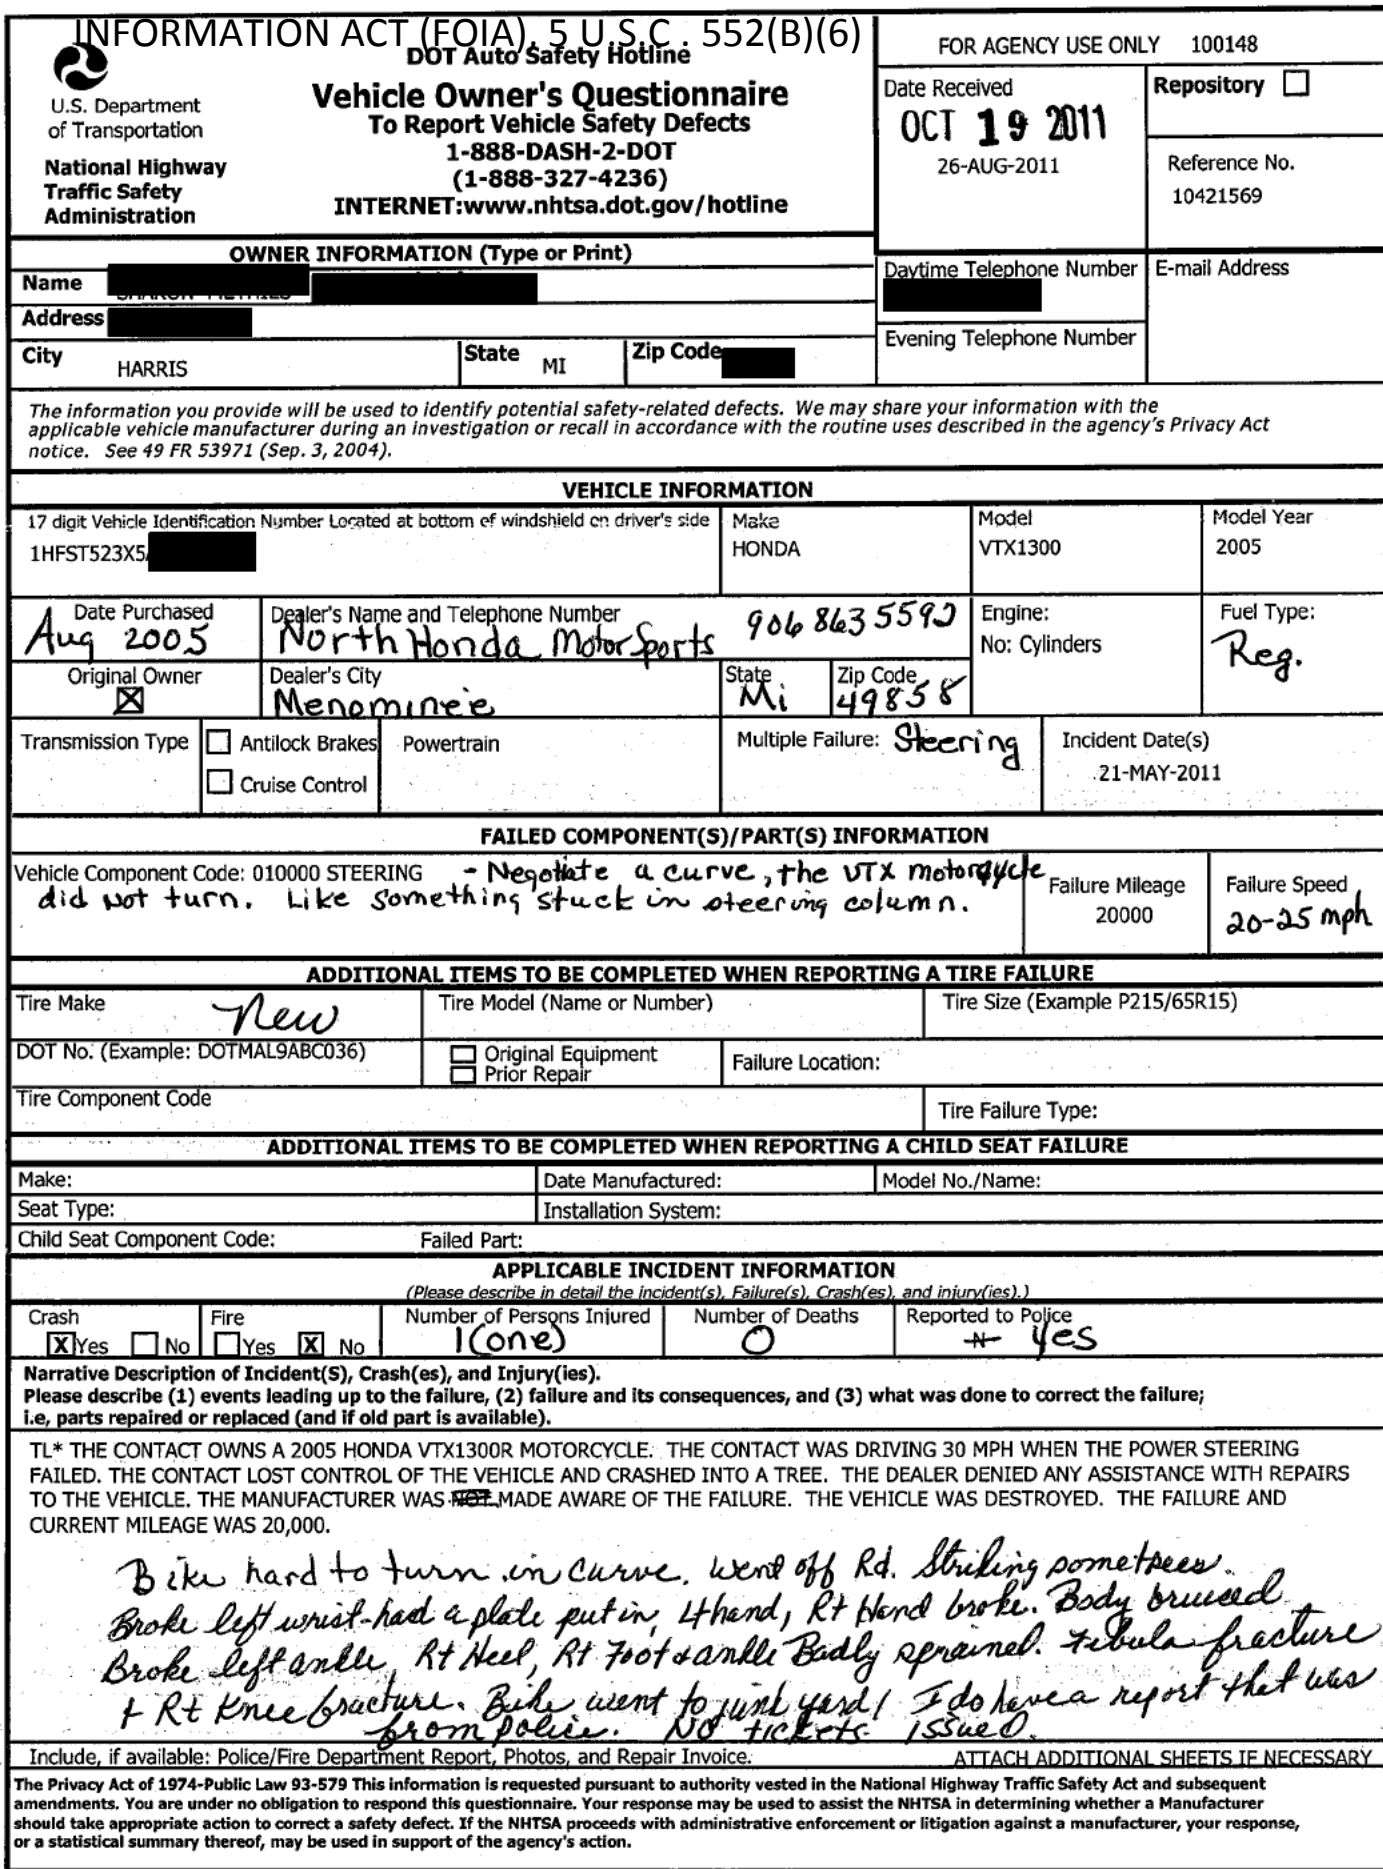 INFORMATION ACT (FOIA), 5 U.S.C . 552(B)(6)
DOT Auto Safety Hotline
Vehicle Owner's Questionnaire
To Report Vehicle Safety Defects
1-888-DASH-2-DOT
(1-888-327-4236)
INTERNET:www.nhtsa.dot.gov/hotline
U.S. Department
of Transportation
National Highway
Traffic Safety
Administration
FOR AGENCY USE ONLY 100148
Date Received
OCT 19 2011
26-AUG-2011
Repository
Reference No.
10421569
OWNER INFORMATION (Type or Print)
Name
Address
City HARRIS State MI Zip Code
Daytime Telephone Number
E-mail Address
Evening Telephone Number
The information you provide will be used to identify potential safety-related defects. We may share your information with the
applicable vehicle manufacturer during an investigation or recall in accordance with the routine uses described in the agency's Privacy Act
notice. See 49 FR 53971 (Sep. 3, 2004).
VEHICLE INFORMATION
17 digit Vehicle Identification Number Located at bottom of windshield on driver's side
1HFST523X5
Make
HONDA
Model
VTX1300
Model Year
2005
Date Purchased
Aug 2005
Dealer's Name and Telephone Number
North Honda MotorSports 906 863 5592
Engine:
No: Cylinders
Fuel Type:
Reg.
Original Owner
X
Dealer's City
Menominee
State
Mi
Zip Code
49858
Transmission Type
Antilock Brakes
Cruise Control
Powertrain
Multiple Failure: Steering
Incident Date(s)
21-MAY-2011
FAILED COMPONENT(S)/PART(S) INFORMATION
Vehicle Component Code: 010000 STEERING - Negotiate a curve, the VTX motorcycle
did not turn. Like something stuck in steering column.
Failure Mileage
20000
Failure Speed
20-25 mph
ADDITIONAL ITEMS TO BE COMPLETED WHEN REPORTING A TIRE FAILURE
Tire Make New
Tire Model (Name or Number)
Tire Size (Example P215/65R15)
DOT No. (Example: DOTMAL9ABC036)
Original Equipment
Prior Repair
Failure Location:
Tire Component Code
Tire Failure Type:
ADDITIONAL ITEMS TO BE COMPLETED WHEN REPORTING A CHILD SEAT FAILURE
Make:
Date Manufactured:
Model No./Name:
Seat Type:
Installation System:
Child Seat Component Code:
Failed Part:
APPLICABLE INCIDENT INFORMATION
(Please describe in detail the incident(s), Failure(s), Crash(es), and injury(ies).)
Crash
X Yes No
Fire
Yes X No
Number of Persons Injured
1 (one)
Number of Deaths
0
Reported to Police
Yes
Narrative Description of Incident(S), Crash(es), and Injury(ies).
Please describe (1) events leading up to the failure, (2) failure and its consequences, and (3) what was done to correct the failure;
i.e, parts repaired or replaced (and if old part is available).
TL* THE CONTACT OWNS A 2005 HONDA VTX1300R MOTORCYCLE. THE CONTACT WAS DRIVING 30 MPH WHEN THE POWER STEERING
FAILED. THE CONTACT LOST CONTROL OF THE VEHICLE AND CRASHED INTO A TREE. THE DEALER DENIED ANY ASSISTANCE WITH REPAIRS
TO THE VEHICLE. THE MANUFACTURER WAS NOT MADE AWARE OF THE FAILURE. THE VEHICLE WAS DESTROYED. THE FAILURE AND
CURRENT MILEAGE WAS 20,000.
Bike hard to turn in curve. went off Rd. Striking some trees.
Broke left wrist-had a plate put in, hand, Rt Hand broke. Body bruised
Broke left ankle, Rt Heel, Rt Foot & ankle Badly sprained. Fibula fracture
+ Rt Knee fracture. Bike went to junk yard! I do have a report that was
from police. No tickets issued.
Include, if available: Police/Fire Department Report, Photos, and Repair Invoice.
ATTACH ADDITIONAL SHEETS IF NECESSARY
The Privacy Act of 1974-Public Law 93-579 This information is requested pursuant to authority vested in the National Highway Traffic Safety Act and subsequent
amendments. You are under no obligation to respond this questionnaire. Your response may be used to assist the NHTSA in determining whether a Manufacturer
should take appropriate action to correct a safety defect. If the NHTSA proceeds with administrative enforcement or litigation against a manufacturer, your response,
or a statistical summary thereof, may be used in support of the agency's action.